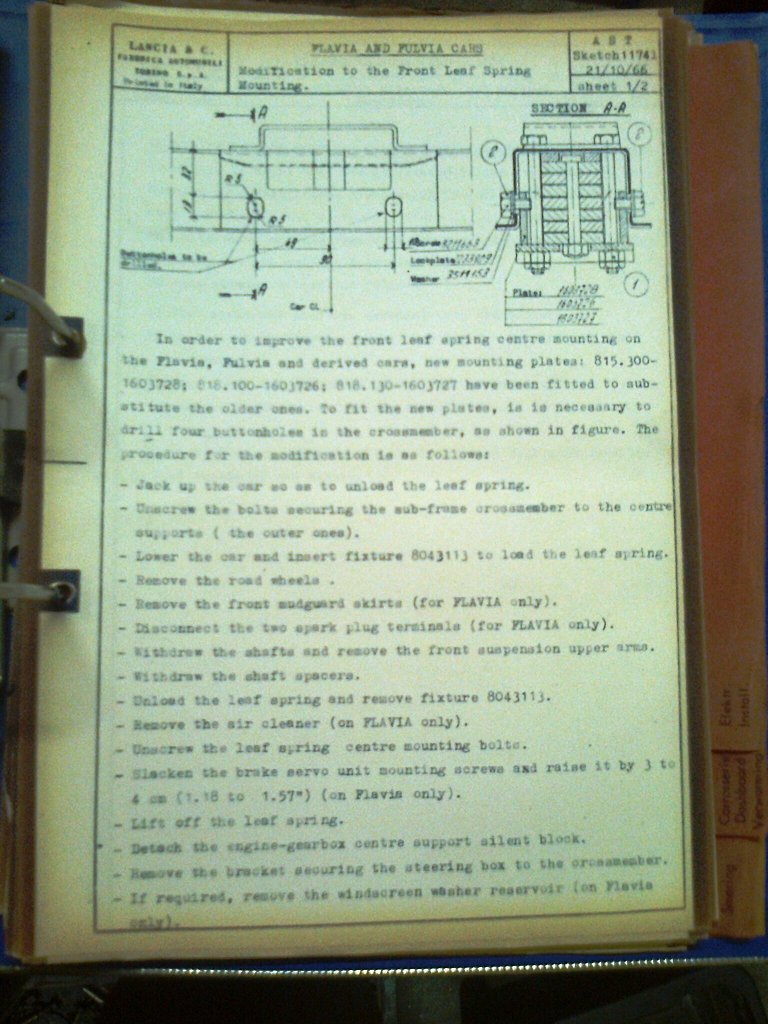 LANCIA & C.
FABBRICA AUTOMOBILI
TORINO S.p.A.
Printed in Italy
FLAVIA AND FULVIA CARS
Modification to the Front Leaf Spring
Mounting.
A S T
Sketch11741
21/10/66
sheet 1/2
SECTION A-A
A
R.5
R.5
Buttonholes to be
drilled.
90
A
Car CL
2
2
Screw
Lockplate
Washer
1
Plate: 1603728
1603726
1603727
In order to improve the front leaf spring centre mounting on
the Flavia, Fulvia and derived cars, new mounting plates: 815.300-
1603728; 818.100-1603726; 818.130-1603727 have been fitted to sub-
stitute the older ones. To fit the new plates, is is necessary to
drill four buttonholes in the crossmember, as shown in figure. The
procedure for the modification is as follows:
- Jack up the car so as to unload the leaf spring.
- Unscrew the bolts securing the sub-frame crossmember to the centre
supports ( the outer ones).
- Lower the car and insert fixture 8043113 to load the leaf spring.
- Remove the road wheels .
- Remove the front mudguard skirts (for FLAVIA only).
- Disconnect the two spark plug terminals (for FLAVIA only).
- Withdraw the shafts and remove the front suspension upper arms.
- Withdraw the shaft spacers.
- Unload the leaf spring and remove fixture 8043113.
- Remove the air cleaner (on FLAVIA only).
- Unscrew the leaf spring centre mounting bolts.
- Slacken the brake servo unit mounting screws and raise it by 3 to
4 cm (1.18 to 1.57") (on Flavia only).
- Lift off the leaf spring.
- Detach the engine-gearbox centre support silent block.
- Remove the bracket securing the steering box to the crossmember.
- If required, remove the windscreen washer reservoir (on Flavia
only).
Elektr
Install.
Carrosserie
Dashboard
Verwarming
Steering